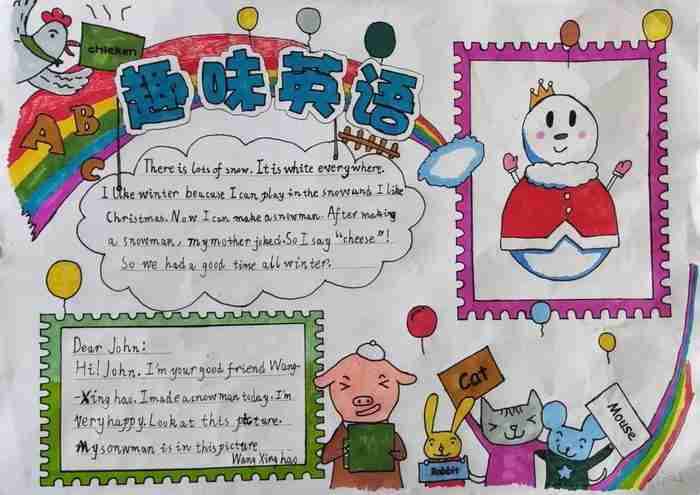 chicken
趣味英语
A
B
C
There is lots of snow. It is white everywhere.
I like winter beacuse I can play in the snow and I like
Christmas. Now I can make a snowman. After making
a snowman, my mother joked. So I say "cheese"!
So we had a good time all winter.
Dear John:
Hi! John. I'm your good friend Wang-
-Xing hao. I made a snowman today. I'm
very happy. Look at this picture.
My sonwman is in this picture
Wang Xing hao
Cat
Rabbit
Mouse